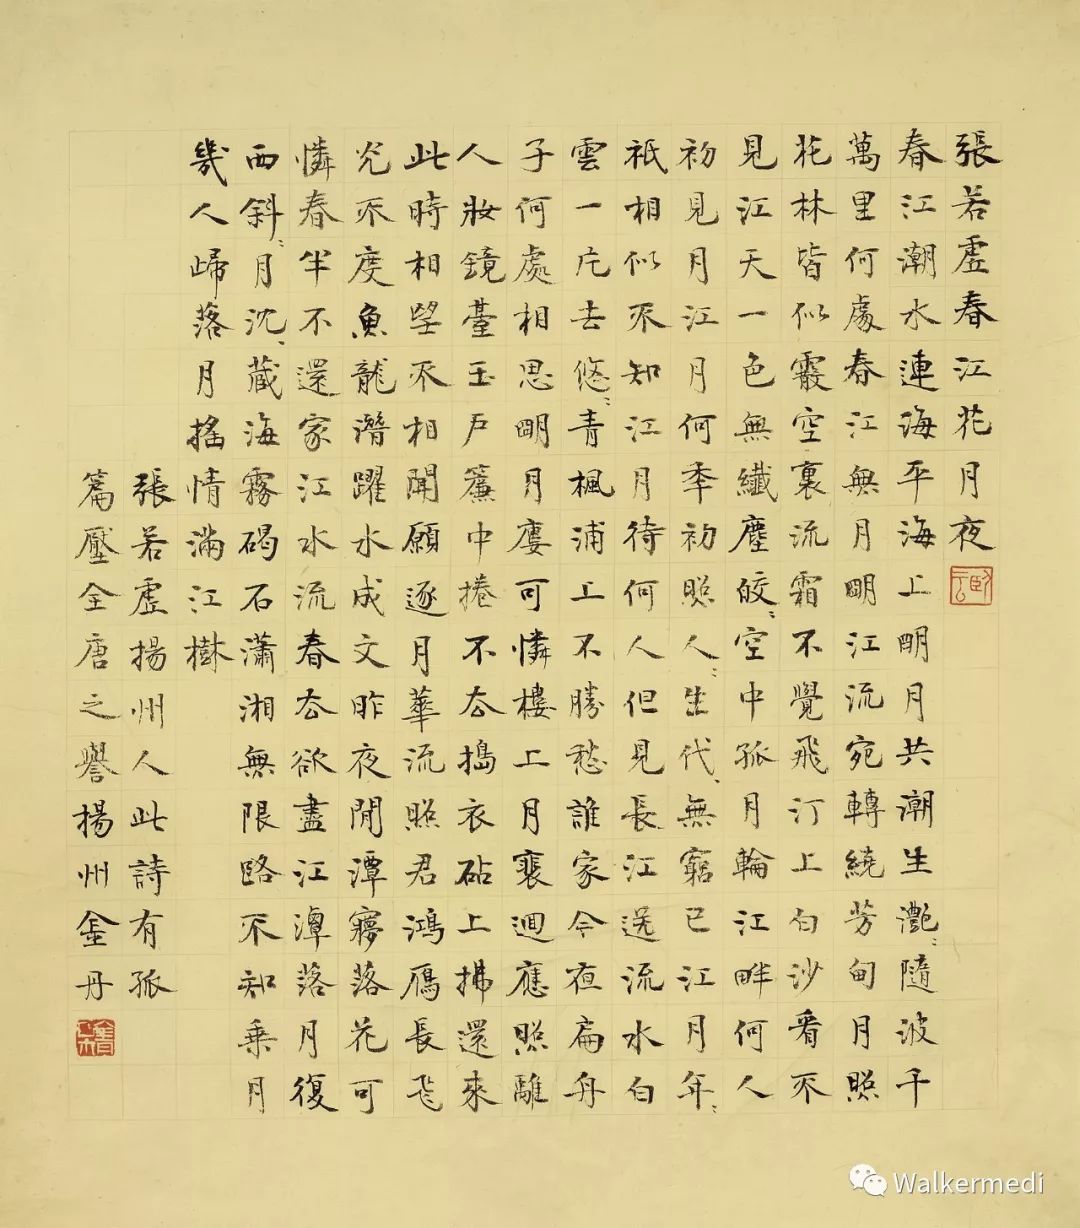 張若虛春江花月夜
春江潮水連海平海上明月共潮生灩〻隨波千
萬里何處春江無月明江流宛轉繞芳甸月照
花林皆似霰空裏流霜不覺飛汀上白沙看不
見江天一色無纖塵皎〻空中孤月輪江畔何人
初見月江月何年初照人〻生代〻無窮已江月年〻
祇相似不知江月待何人但見長江送流水白
雲一片去悠〻青楓浦上不勝愁誰家今夜扁舟
子何處相思明月廔可憐樓上月裵迴應照離
人妝鏡臺玉戶簾中捲不去搗衣砧上拂還來
此時相望不相聞願逐月華流照君鴻雁長飛
光不度魚龍潛躍水成文昨夜閒潭夢落花可
憐春半不還家江水流春去欲盡江潭落月復
西斜〻月沈〻藏海霧碣石瀟湘無限路不知乘月
幾人歸落月搖情滿江樹
張若虛揚州人此詩有孤
篇壓全唐之譽揚州金丹
Walkermedi